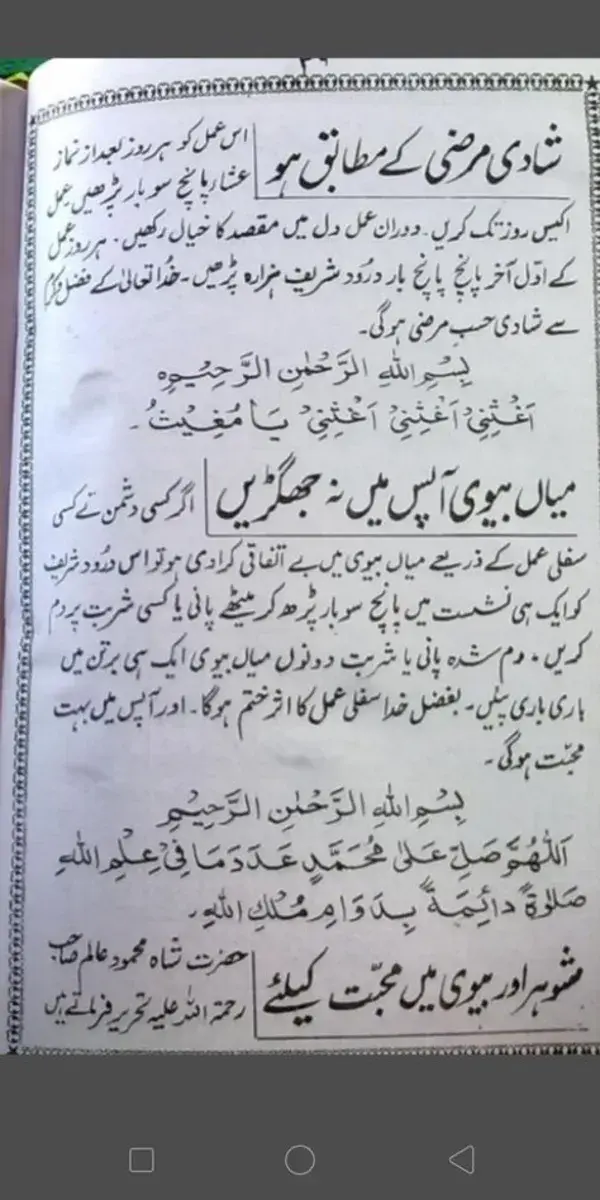 ۳۹
شادی مرضی کے مطابق ہو
اس عمل کو ہر روز بعد از نماز
عشار پانچ سو بار پڑھیں عمل
اکیس روز تک کریں۔ دوران عمل دل میں مقصد کا خیال رکھیں۔ ہر روز عمل
کے اوّل آخر پانچ پانچ بار درُود شریف ہزارہ پڑھیں۔ خُدا تعالیٰ کے فضل و کرم
سے شادی حسبِ مرضی ہو گی۔
بِسْمِ اللّٰهِ الرَّحْمٰنِ الرَّحِيْمِ ه
اَغِثْنِيْ اَغِثْنِيْ اَغِثْنِيْ يَا مُغِيْثُ۔
میاں بیوی آپس میں نہ جھگڑیں
اگر کسی دشمن نے کسی
سفلی عمل کے ذریعے میاں بیوی میں بے اتفاقی کرا دی ہو تو اس درُود شریف
کو ایک ہی نشست میں پانچ سو بار پڑھ کر میٹھے پانی یا کسی شربت پر دم
کریں۔ دم شدہ پانی یا شربت دونوں میاں بیوی ایک ہی برتن میں
باری باری پئیں۔ بفضلِ خدا سفلی عمل کا اثر ختم ہو گا۔ اور آپس میں بہت
محبّت ہو گی۔
بِسْمِ اللّٰهِ الرَّحْمٰنِ الرَّحِيْمِ
اَللّٰهُمَّ صَلِّ عَلٰى مُحَمَّدٍ عَدَدَ مَا فِيْ عِلْمِ اللّٰهِ
صَلٰوةً دَائِمَةً بِدَوَامِ مُلْكِ اللّٰهِ۔
شوہر اور بیوی میں محبّت کیلئے
حضرت شاہ محمود عالم صاحب
رحمۃ اللہ علیہ تحریر فرماتے ہیں